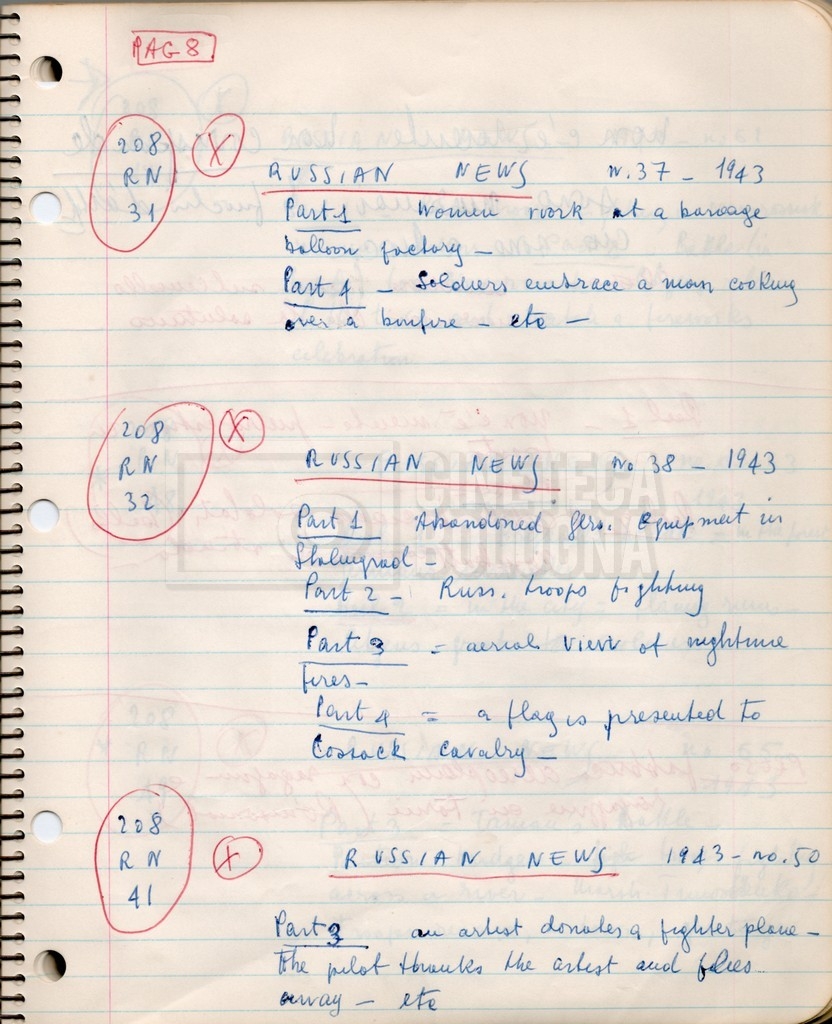 PAG 8
208
RN
31
X
RUSSIAN NEWS n. 37 - 1943
Part 1 Women work at a barrage
balloon factory -
Part 4 - Soldiers embrace a man cooking
over a bonfire - etc -
208
RN
32
X
RUSSIAN NEWS no 38 - 1943
Part 1 Abandoned Ger. Equipment in
Stalingrad -
Part 2 - Russ. troops fighting
Part 3 = aerial view of nightime
fires -
Part 4 = a flag is presented to
Cossack cavalry -
208
RN
41
X
RUSSIAN NEWS 1943 - no. 50
Part 3 an artist donates a fighter plane -
the pilot thanks the artist and flies
away - etc
CINETECA
BOLOGNA